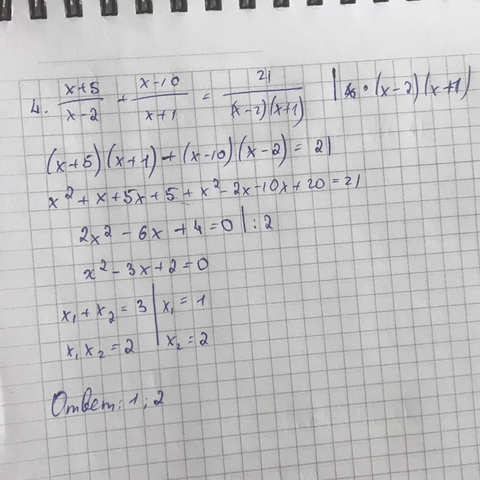 4. (x+5)/(x-2) + (x-10)/(x+1) = 21/((x-2)(x+1)) | · (x-2)(x+1)
(x+5)(x+1)+(x-10)(x-2)=21
x²+x+5x+5+x²-2x-10x+20=21
2x²-6x+4=0 |:2
x²-3x+2=0
x₁+x₂=3 | x₁=1
x₁x₂=2 | x₂=2
Ответ: 1; 2